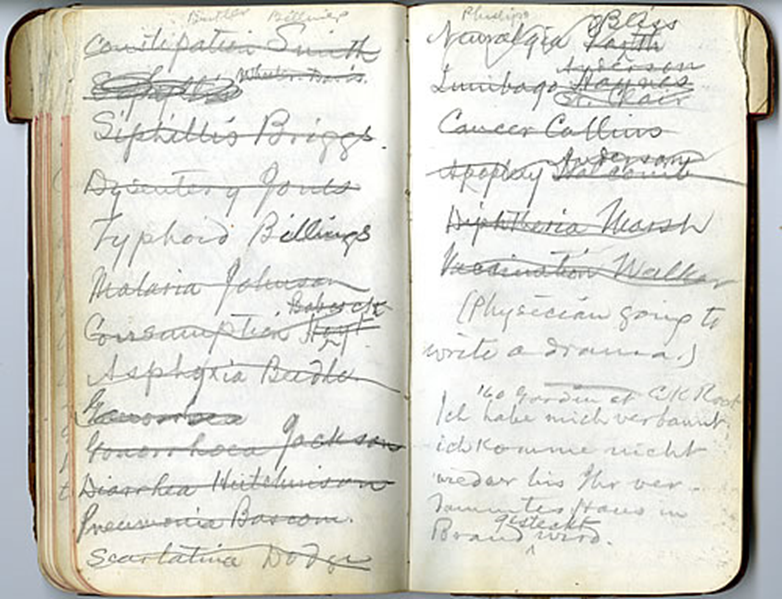 Butler Billings
Constipation Smith
Wheeler Davis.
Siphillis Briggs.
Dysentery Jones
Typhoid Billings
Malaria Johnson
Babcock
Consumption Hoyt
Asphyxia Beedle
Gonorrhoea Jackson
Diarrhea Hutchinson
Pneumonia Bascom.
Scarlatina Dodge
Phillips Bliss
Neuralgia Smith
Anderson
Lumbago Haynes
St. Clair
Cancer Collins
Anderson
Apoplexy Holcomb
Diphtheria Marsh
Vaccination Walker
(Physician going to
write a drama.)
Garden at
Ich habe mich verbaunt,
ich komme nicht
wieder bis Ihr ver-
Haus in
gesteckt
Brand wird.